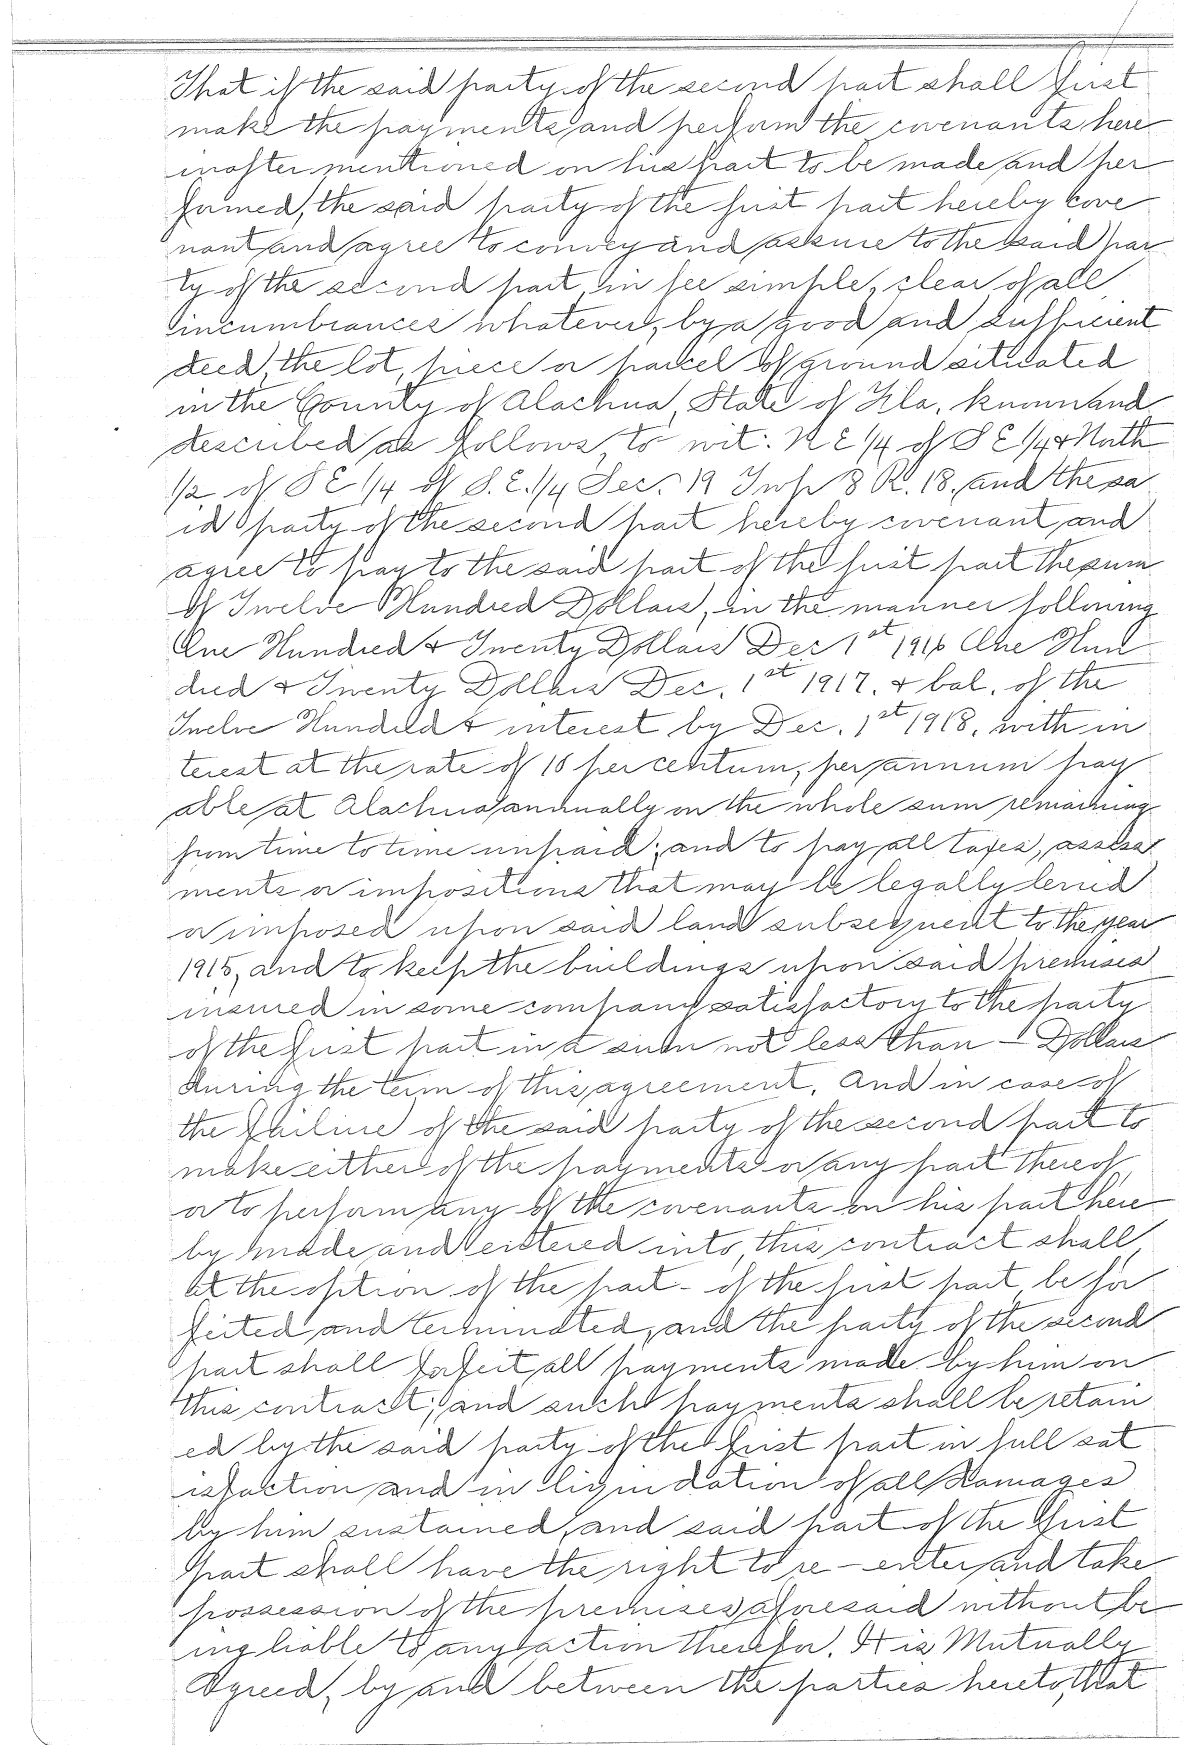 That if the said party of the second part shall first
make the payments and perform the covenants here
inafter mentioned on his part to be made and per
formed, the said party of the first part hereby cove
nant and agree to convey and assure to the said par
ty of the second part, in fee simple, clear of all
incumbrances whatever, by a good and sufficient
deed, the lot, piece or parcel of ground situated
in the County of Alachua, State of Fla. known and
described as follows, to wit: N E 1/4 of S E 1/4 & North
1/2 of S E 1/4 of S. E. 1/4 Sec. 19 Twp 8 R. 18. and the sa
id party of the second part hereby covenant and
agree to pay to the said part of the first part the sum
of Twelve Hundred Dollars, in the manner following
One Hundred & Twenty Dollars Dec 1st 1916 One Hun
dred & Twenty Dollars Dec. 1st 1917. & bal. of the
Twelve Hundred & interest by Dec. 1st 1918. with in
terest at the rate of 10 per centum, per annum pay
able at Alachua annually on the whole sum remaining
from time to time unpaid; and to pay all taxes, assess
ments or impositions that may be legally levied
or imposed upon said land subsequent to the year
1915, and to keep the buildings upon said premises
insured in some company satisfactory to the party
of the first part in a sum not less than — Dollars
during the term of this agreement. And in case of
the failure of the said party of the second part to
make either of the payments or any part thereof,
or to perform any of the covenants on his part here
by made and entered into, this contract shall,
at the option of the part- of the first part, be for
feited and terminated, and the party of the second
part shall forfeit all payments made by him on
this contract; and such payments shall be retain
ed by the said party of the first part in full sat
isfaction and in liquidation of all damages
by him sustained, and said part of the first
part shall have the right to re-enter and take
possession of the premises aforesaid without be
ing liable to any action therefor. It is Mutually
Agreed, by and between the parties hereto, that